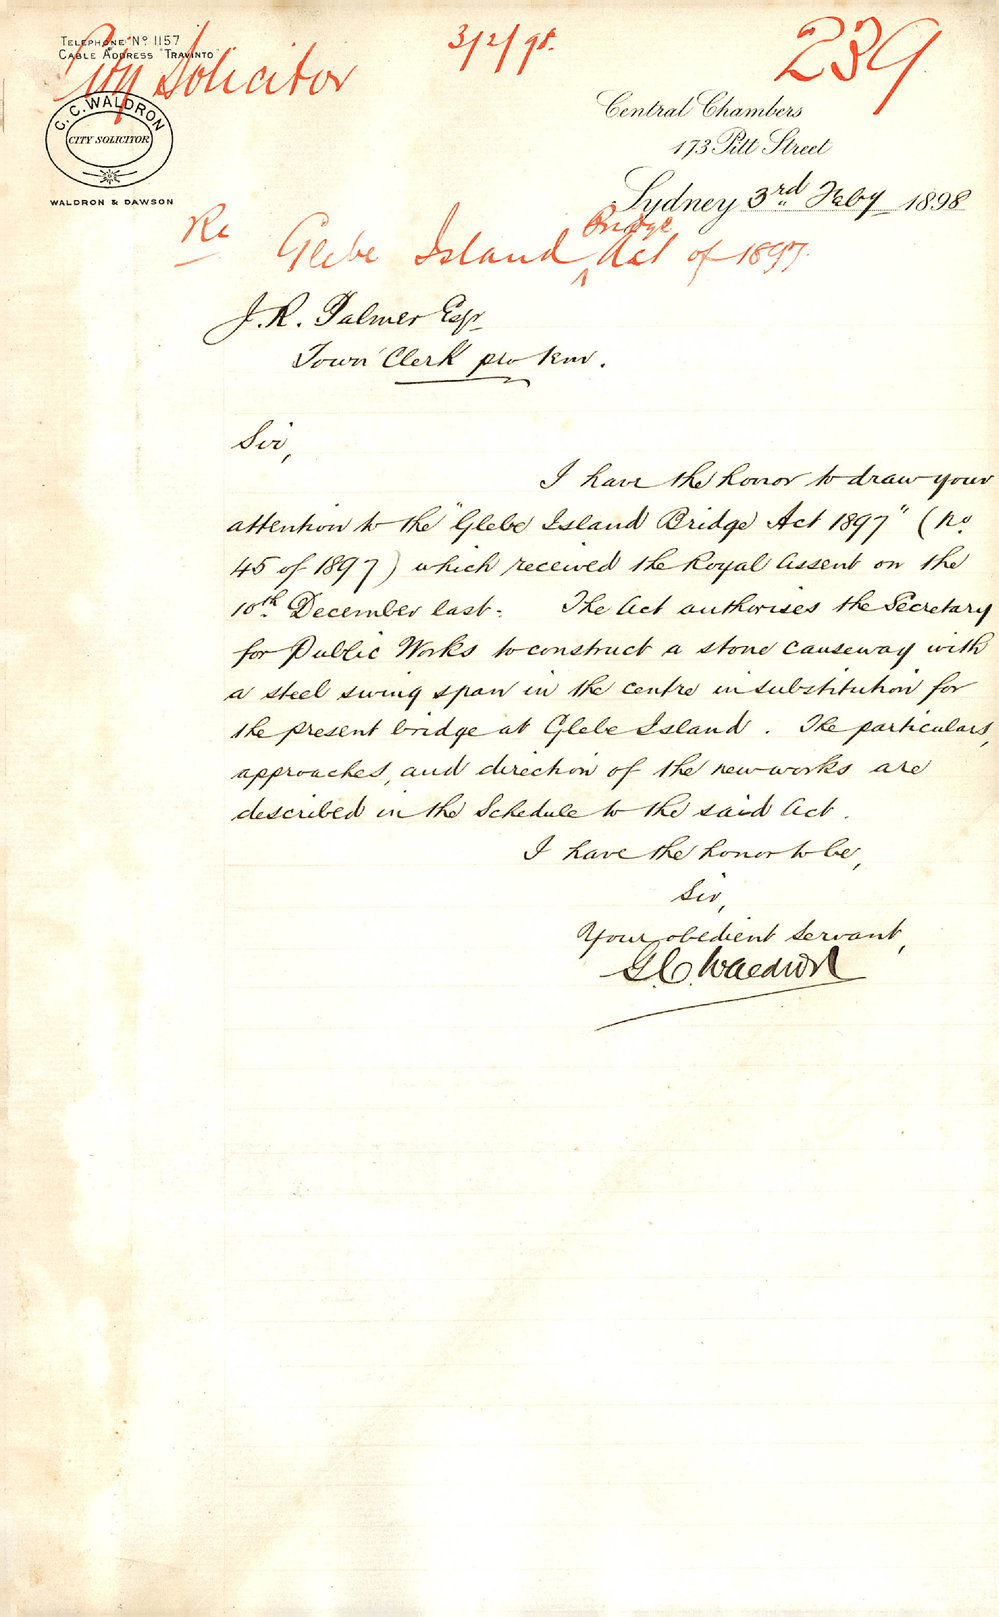 TELEPHONE No. 1157
CABLE ADDRESS "TRAVINTO"
City Solicitor
3/2/98.
239
C. C. WALDRON
CITY SOLICITOR
WALDRON & DAWSON
Central Chambers
173 Pitt Street
Sydney 3rd Feby 1898
Re Glebe Island Bridge Act of 1897.
J. R. Palmer Esqr
Town Clerk pro tem.
Sir,
I have the honor to draw your
attention to the "Glebe Island Bridge Act 1897" (No
45 of 1897) which received the Royal Assent on the
10th December last. The Act authorises the Secretary
for Public Works to construct a stone causeway with
a steel swing span in the centre in substitution for
the present bridge at Glebe Island. The particulars,
approaches, and direction of the new works are
described in the Schedule to the said Act.
I have the honor to be,
Sir,
Your obedient Servant,
G. C. Waldron